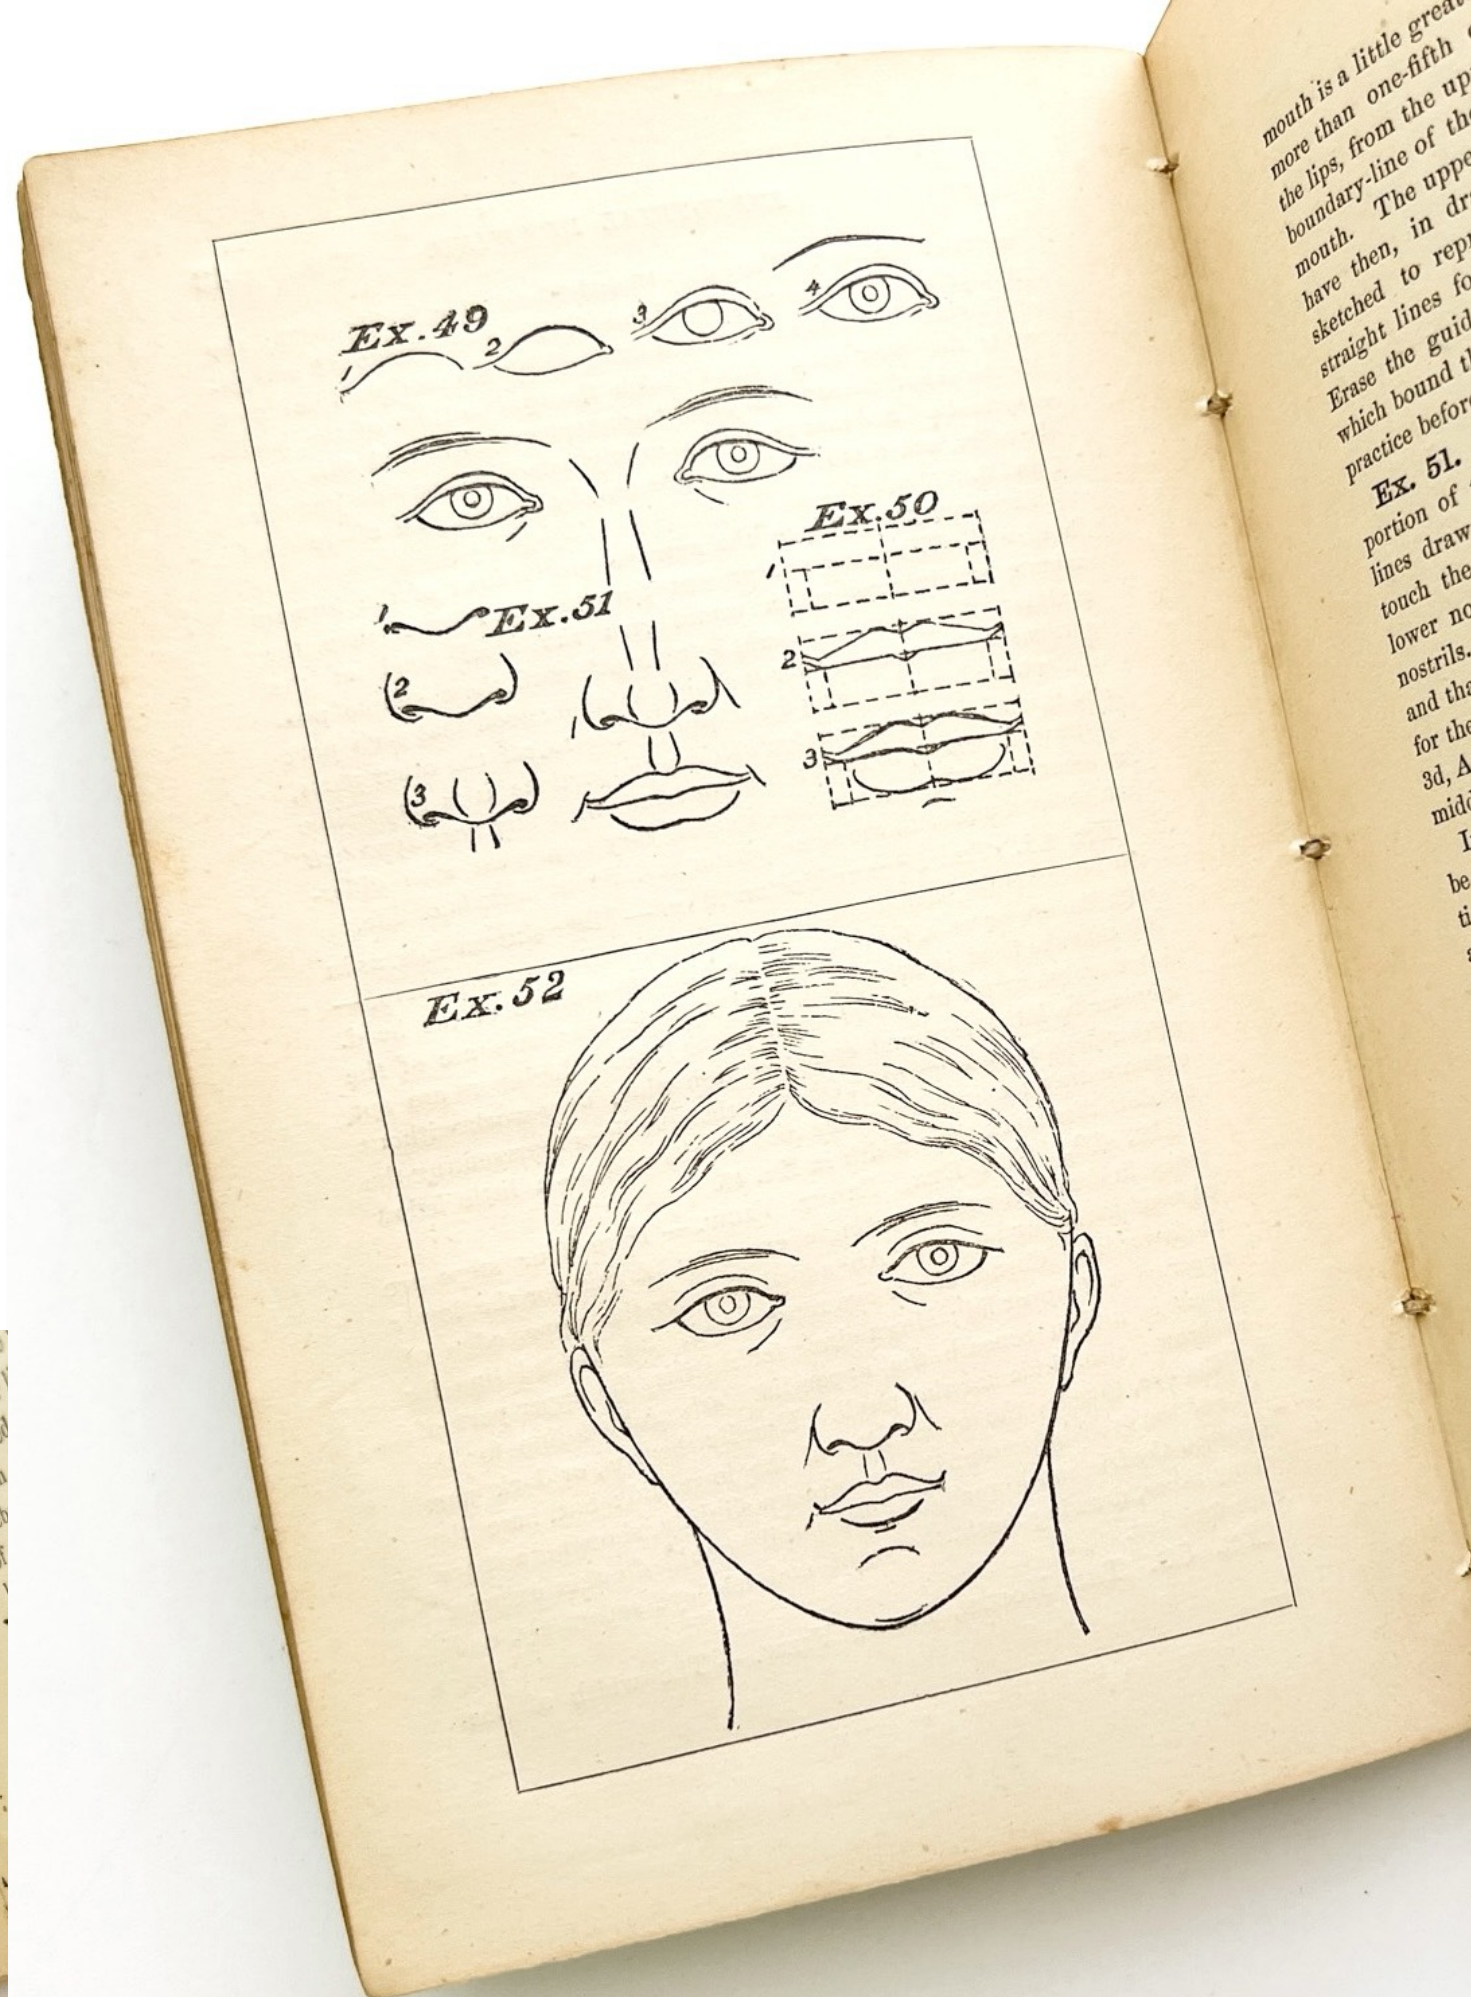 Ex.49
1
2
3
4
Ex.50
1
2
3
1
Ex.51
2
3
Ex.52
mouth is a little great
more than one-fifth
the lips, from the up
boundary-line of the
mouth. The uppe
have then, in dr
sketched to rep
straight lines fo
Erase the guid
which bound t
practice before
Ex. 51.
portion of
lines draw
touch the
lower no
nostrils.
and tha
for the
3d, A
midd
I
be
ti